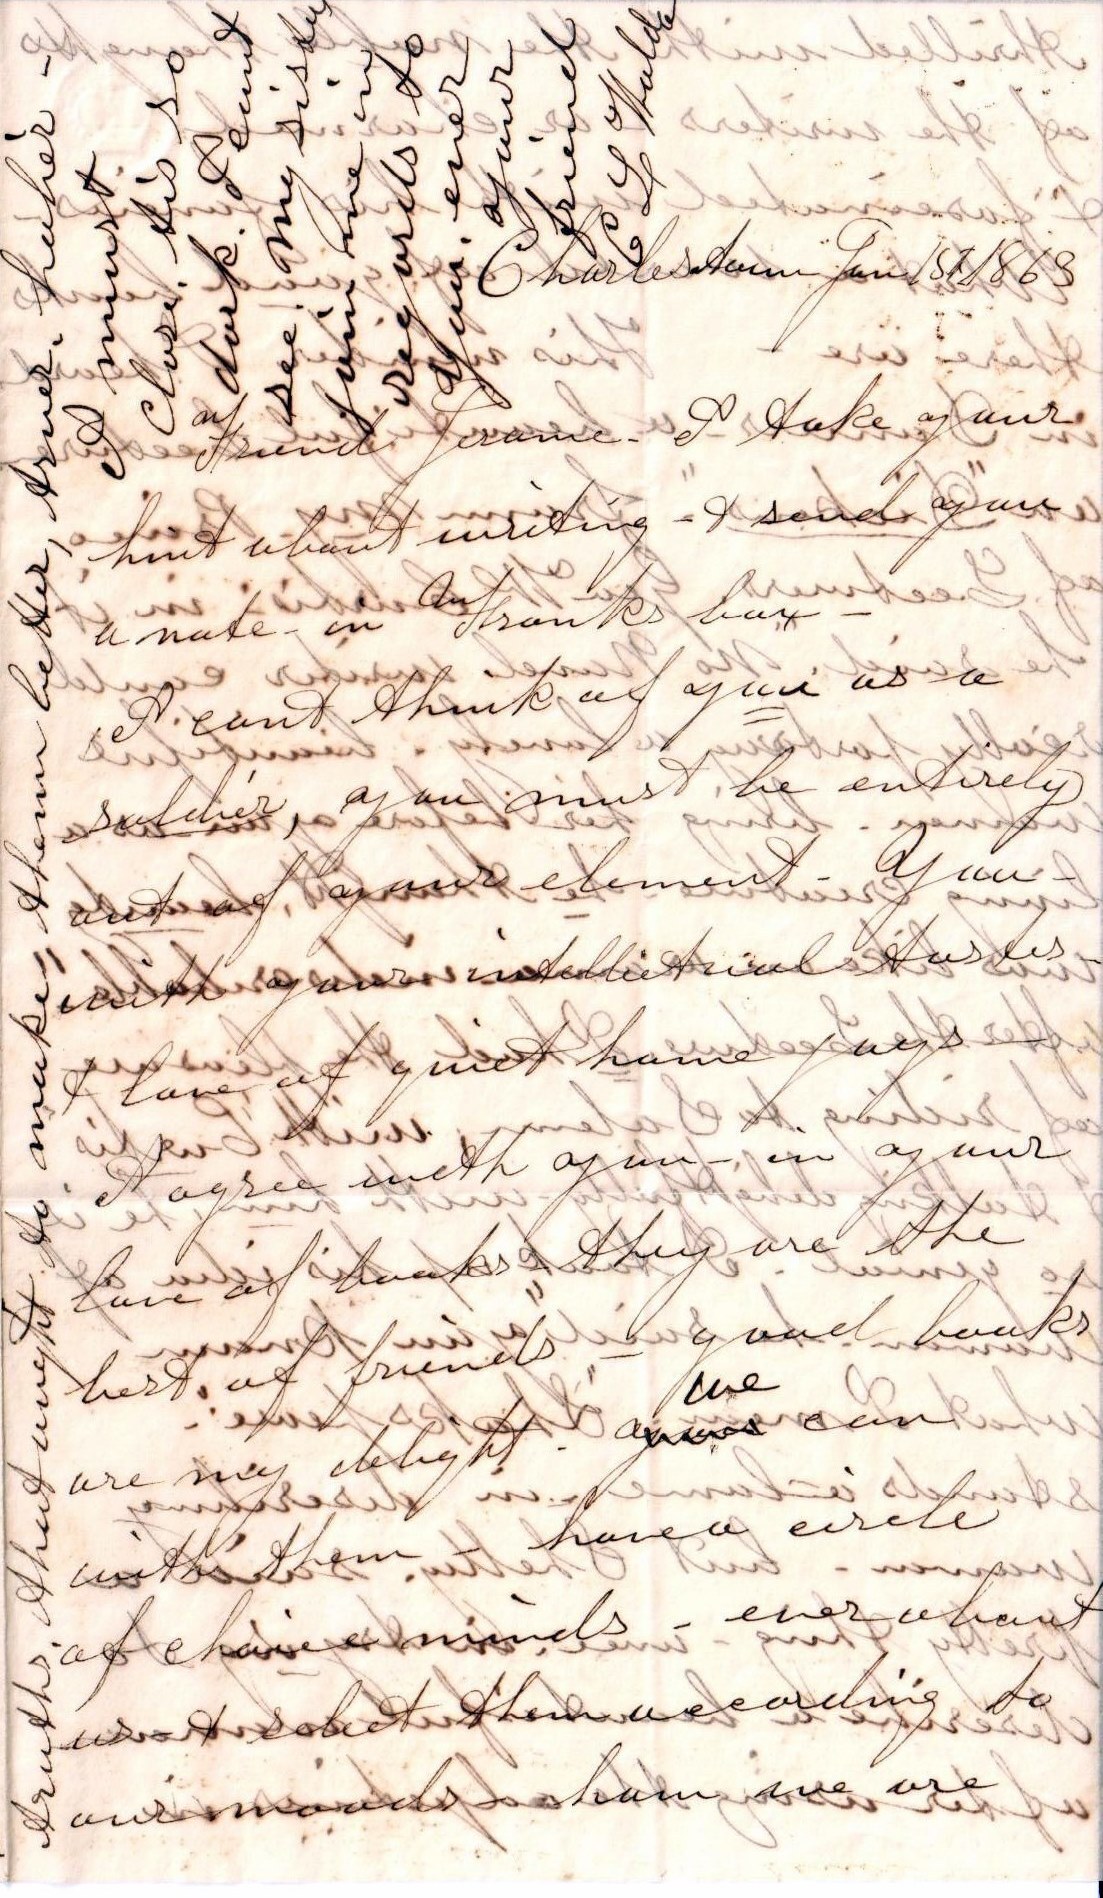 Charlestown Jan 1st/1863
My
Friend Jerome - I take your
hint about writing - & send you
a note - in Frank's box -
I cant think of you as a
soldier, you must be entirely
out of your element - You -
with your intellectual tastes -
& love of quiet home joys -
I agree with you - in your
love of books - they are the
best of friends - good books
are my delight - we can
with them - have a circle
of choice minds - ever about
us & select them according to
our moods - how we are
truths, that ought to make them better, truer, higher -
I must
close. tis so
dark. I cant
see. My sister
join me in
regards to
you. ever
your
friend
L Walde